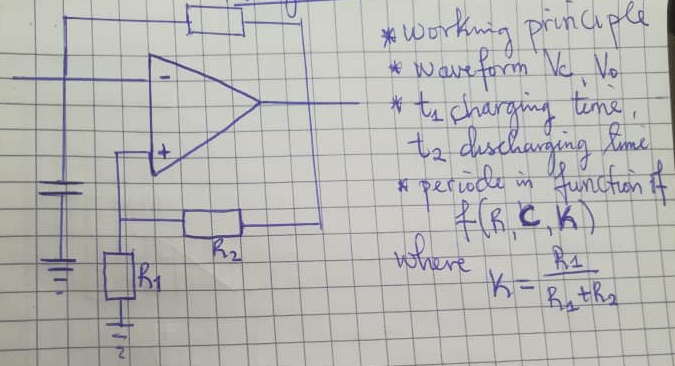 * working principle
* waveform Vc, Vo
* t1 charging time,
t2 discharging time
* periode in function if
f(R, C, K)
where K = R1 / R1+R2
-
+
R2
R1